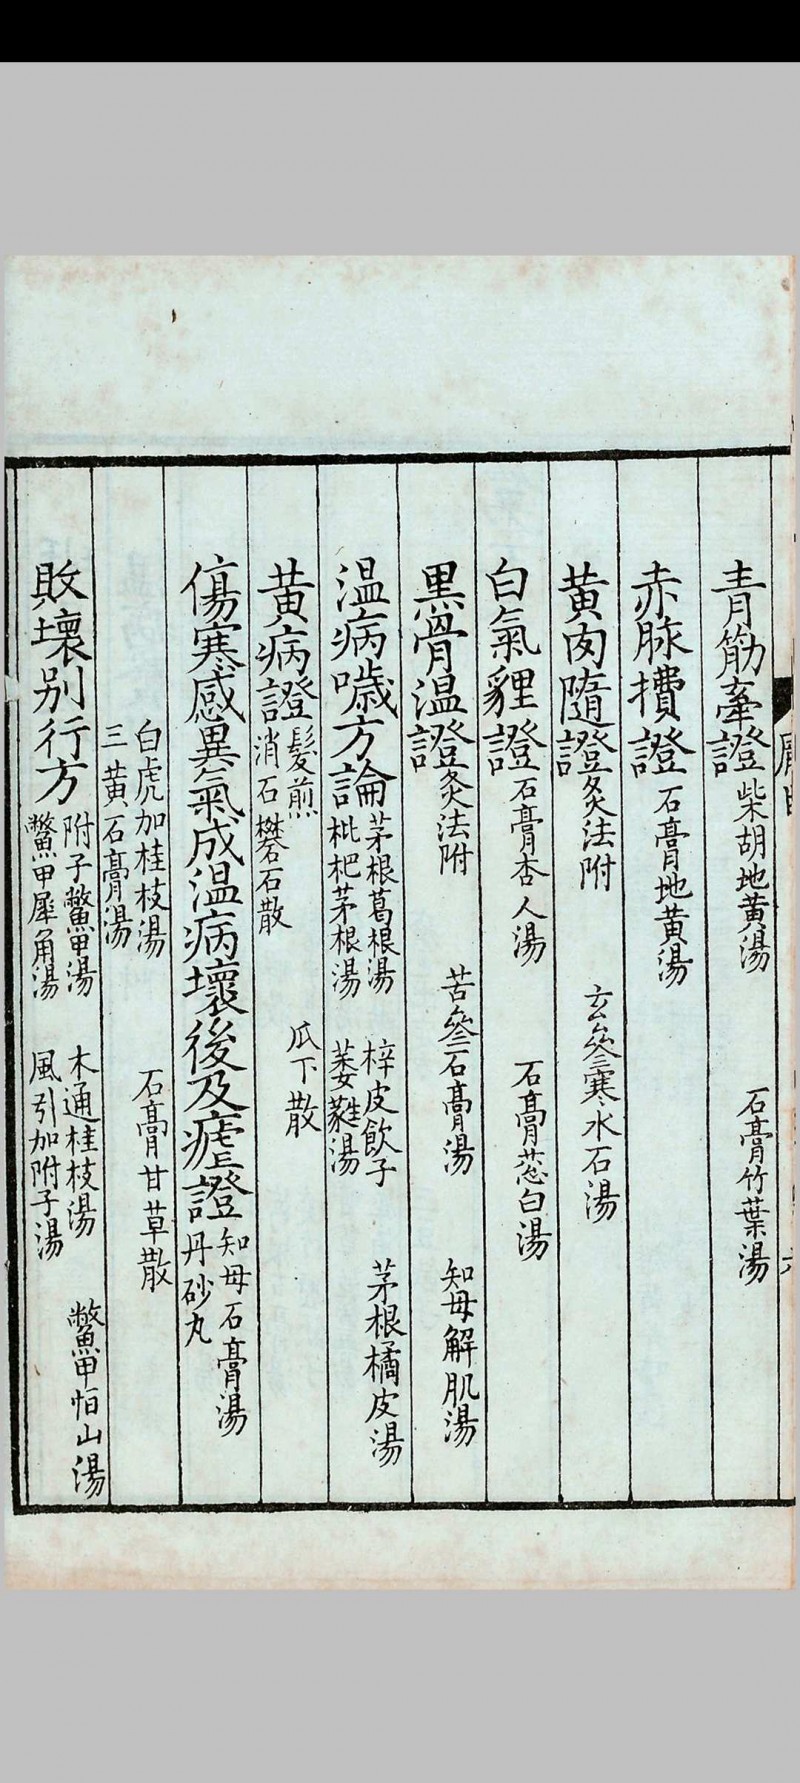 青筋牽證 柴胡地黃湯 石膏竹葉湯
赤脉攢證 石膏地黃湯
黃肉隨證 灸法附 玄參寒水石湯
白氣貍證 石膏杏人湯 石膏葱白湯
黑骨温證 灸法附 苦參石膏湯 知母解肌湯
温病噦方論 茅根葛根湯 梓皮飲子 茅根橘皮湯
枇杷茅根湯 萎蕤湯
黃病證 髮煎 瓜下散
消石礬石散
傷寒感異氣成温病壞後及瘧證 知母石膏湯
丹砂丸
白虎加桂枝湯 石膏甘草散
三黃石膏湯
敗壞別行方 附子鱉甲湯 木通桂枝湯 鱉甲恒山湯
鱉甲犀角湯 風引加附子湯